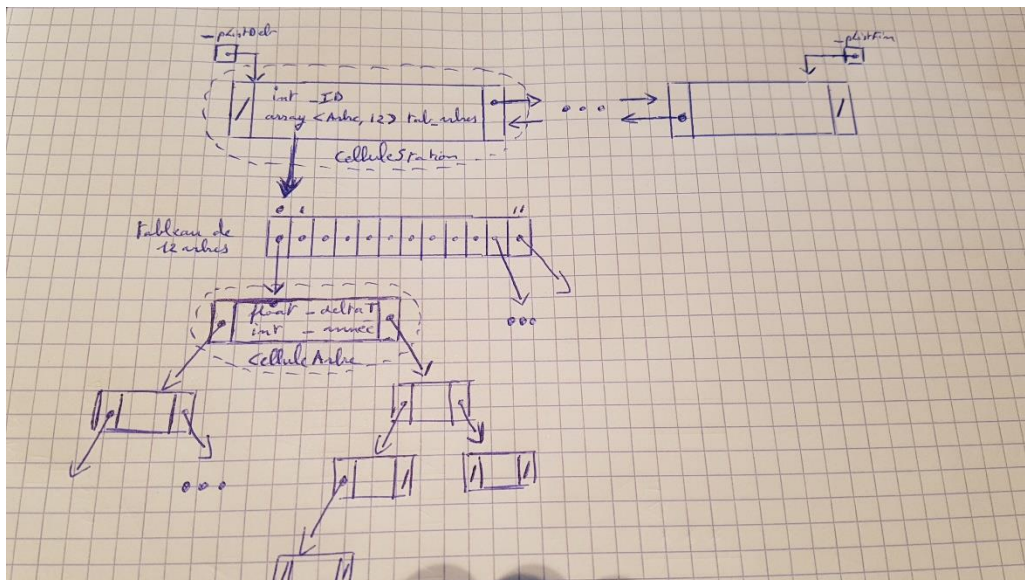 _plistDeb
_plistFin
int _ID
array <Arbre, 12> tab_arbres
CelluleStation
0 1 11
Tableau de
12 arbres
float _deltaT
int _annee
CelluleArbre